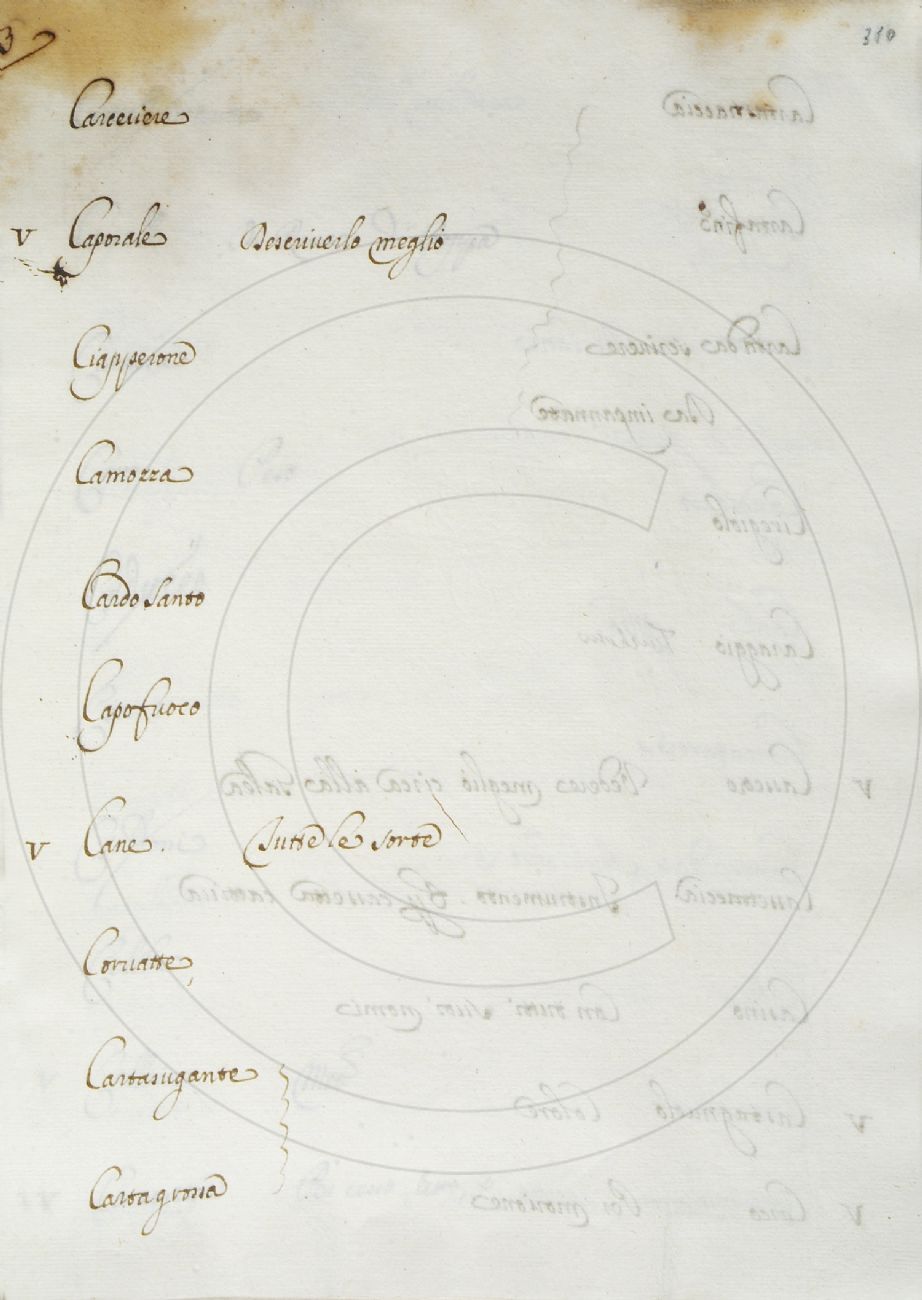 310
Carceriere
V Caporale Descriverlo meglio
Ciapperone
Camozza
Cardo santo
Capofuoco
V Cane. Tutte le sorte
Coruatte
Cartasugante
Cartagrossa